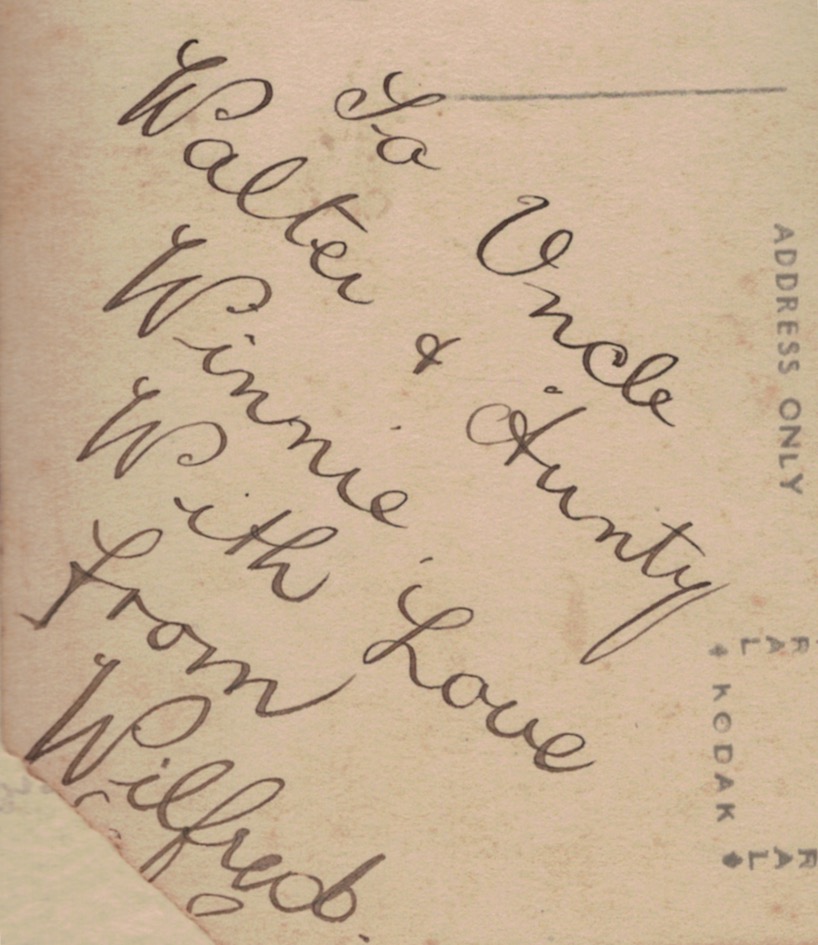 To Uncle
Walter & Aunty
Winnie.
With Love
from
Wilfred.
ADDRESS ONLY
KODAK